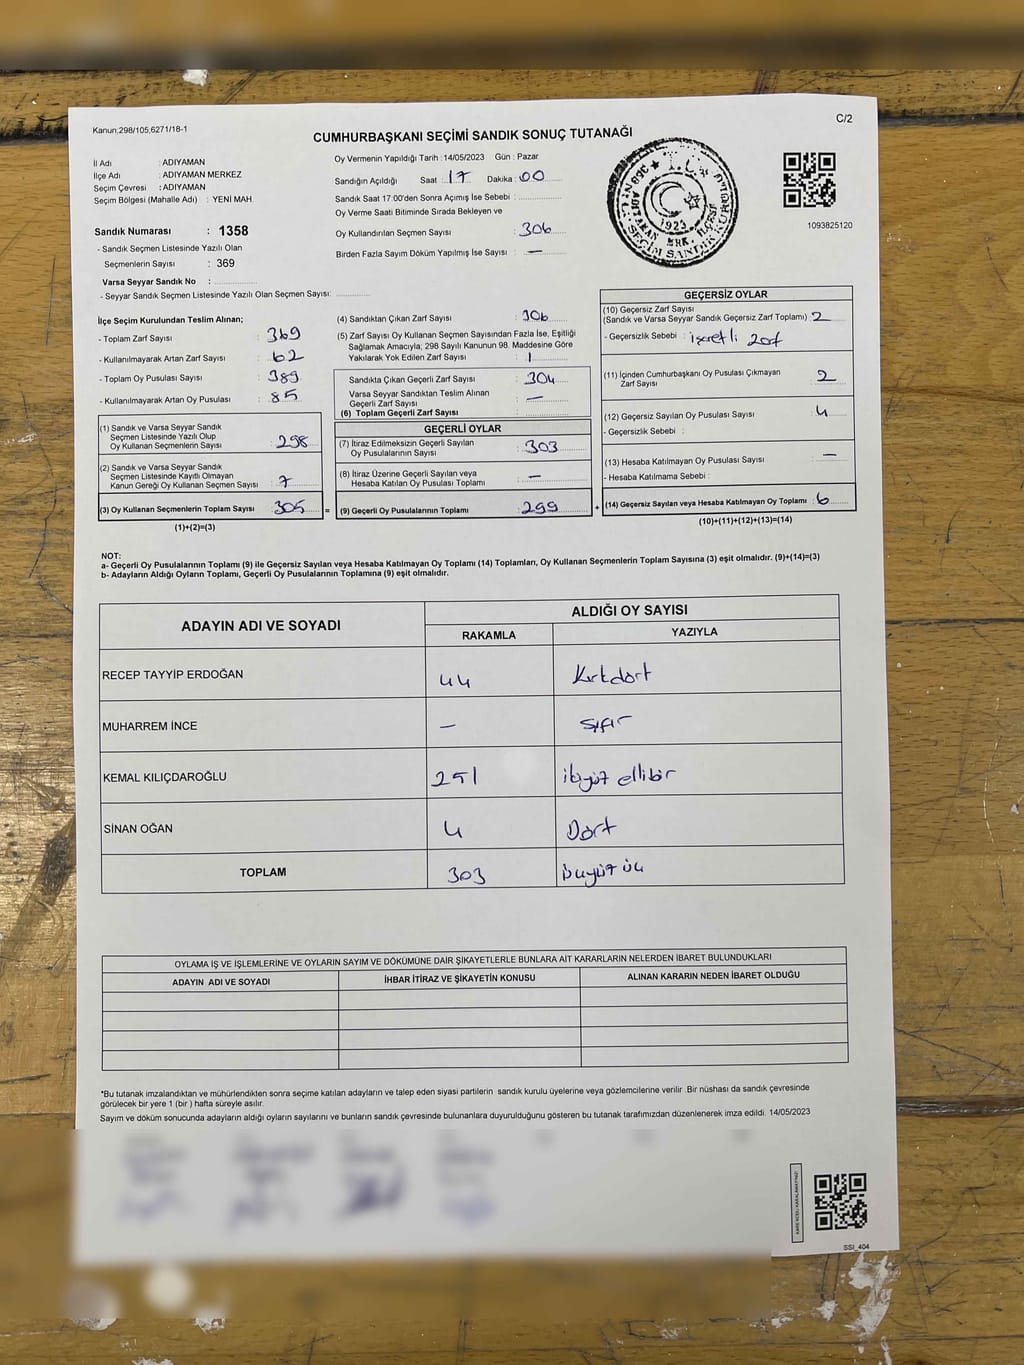 Kanun;298/105;6271/18-1
C/2
CUMHURBAŞKANI SEÇİMİ SANDIK SONUÇ TUTANAĞI
İl Adı : ADIYAMAN
İlçe Adı : ADIYAMAN MERKEZ
Seçim Çevresi : ADIYAMAN
Seçim Bölgesi (Mahalle Adı) : YENİ MAH.
Sandık Numarası : 1358
- Sandık Seçmen Listesinde Yazılı Olan
Seçmenlerin Sayısı : 369
Varsa Seyyar Sandık No :
- Seyyar Sandık Seçmen Listesinde Yazılı Olan Seçmen Sayısı:
Oy Vermenin Yapıldığı Tarih : 14/05/2023 Gün : Pazar
Sandığın Açıldığı Saat : 17 Dakika : 00
Sandık Saat 17.00'den Sonra Açımış İse Sebebi :
Oy Verme Saati Bitiminde Sırada Bekleyen ve
Oy Kullandırılan Seçmen Sayısı : 306
Birden Fazla Sayım Döküm Yapılmış İse Sayısı : —
1923
1093825120
İlçe Seçim Kurulundan Teslim Alınan;
- Toplam Zarf Sayısı : 369
- Kullanılmayarak Artan Zarf Sayısı : 62
- Toplam Oy Pusulası Sayısı : 389
- Kullanılmayarak Artan Oy Pusulası : 85
(1) Sandık ve Varsa Seyyar Sandık
Seçmen Listesinde Yazılı Olup
Oy Kullanan Seçmenlerin Sayısı : 298
(2) Sandık ve Varsa Seyyar Sandık
Seçmen Listesinde Kayıtlı Olmayan
Kanun Gereği Oy Kullanan Seçmen Sayısı : 7
(3) Oy Kullanan Seçmenlerin Toplam Sayısı : 305
(1)+(2)=(3)
(4) Sandıktan Çıkan Zarf Sayısı : 306
(5) Zarf Sayısı Oy Kullanan Seçmen Sayısından Fazla İse, Eşitliği
Sağlamak Amacıyla; 298 Sayılı Kanunun 98. Maddesine Göre
Yakılarak Yok Edilen Zarf Sayısı : 1
Sandıkta Çıkan Geçerli Zarf Sayısı : 304
Varsa Seyyar Sandıktan Teslim Alınan
Geçerli Zarf Sayısı : —
(6) Toplam Geçerli Zarf Sayısı :
GEÇERLİ OYLAR
(7) İtiraz Edilmeksizin Geçerli Sayılan
Oy Pusulalarının Sayısı : 303
(8) İtiraz Üzerine Geçerli Sayılan veya
Hesaba Katılan Oy Pusulası Toplamı : —
= (9) Geçerli Oy Pusulalarının Toplamı : 299 +
GEÇERSİZ OYLAR
(10) Geçersiz Zarf Sayısı
(Sandık ve Varsa Seyyar Sandık Geçersiz Zarf Toplamı) : 2
- Geçersizlik Sebebi : işaretli zarf
(11) İçinden Cumhurbaşkanı Oy Pusulası Çıkmayan
Zarf Sayısı : 2
(12) Geçersiz Sayılan Oy Pusulası Sayısı : 4
- Geçersizlik Sebebi :
(13) Hesaba Katılmayan Oy Pusulası Sayısı : —
- Hesaba Katılmama Sebebi :
(14) Geçersiz Sayılan veya Hesaba Katılmayan Oy Toplamı : 6
(10)+(11)+(12)+(13)=(14)
NOT:
a- Geçerli Oy Pusulalarının Toplamı (9) ile Geçersiz Sayılan veya Hesaba Katılmayan Oy Toplamı (14) Toplamları, Oy Kullanan Seçmenlerin Toplam Sayısına (3) eşit olmalıdır. (9)+(14)=(3)
b- Adayların Aldığı Oyların Toplamı, Geçerli Oy Pusulalarının Toplamına (9) eşit olmalıdır.
ADAYIN ADI VE SOYADI
ALDIĞI OY SAYISI
RAKAMLA YAZIYLA
RECEP TAYYİP ERDOĞAN 44 Kırkdört
MUHARREM İNCE — sıfır
KEMAL KILIÇDAROĞLU 251 ikiyüz ellibir
SİNAN OĞAN 4 Dört
TOPLAM 303 üçyüz üç
OYLAMA İŞ VE İŞLEMLERİNE VE OYLARIN SAYIM VE DÖKÜMÜNE DAİR ŞİKAYETLERLE BUNLARA AİT KARARLARIN NELERDEN İBARET BULUNDUKLARI
ADAYIN ADI VE SOYADI İHBAR İTİRAZ VE ŞİKAYETİN KONUSU ALINAN KARARIN NEDEN İBARET OLDUĞU
*Bu tutanak imzalandıktan ve mühürlendikten sonra seçime katılan adayların ve talep eden siyasi partilerin sandık kurulu üyelerine veya gözlemcilerine verilir. Bir nüshası da sandık çevresinde
görülecek bir yere 1 (bir ) hafta süreyle asılır.
Sayım ve döküm sonucunda adayların aldığı oyların sayılarını ve bunların sandık çevresinde bulunanlara duyurulduğunu gösteren bu tutanak tarafımızdan düzenlenerek imza edildi. 14/05/2023
SSI_404